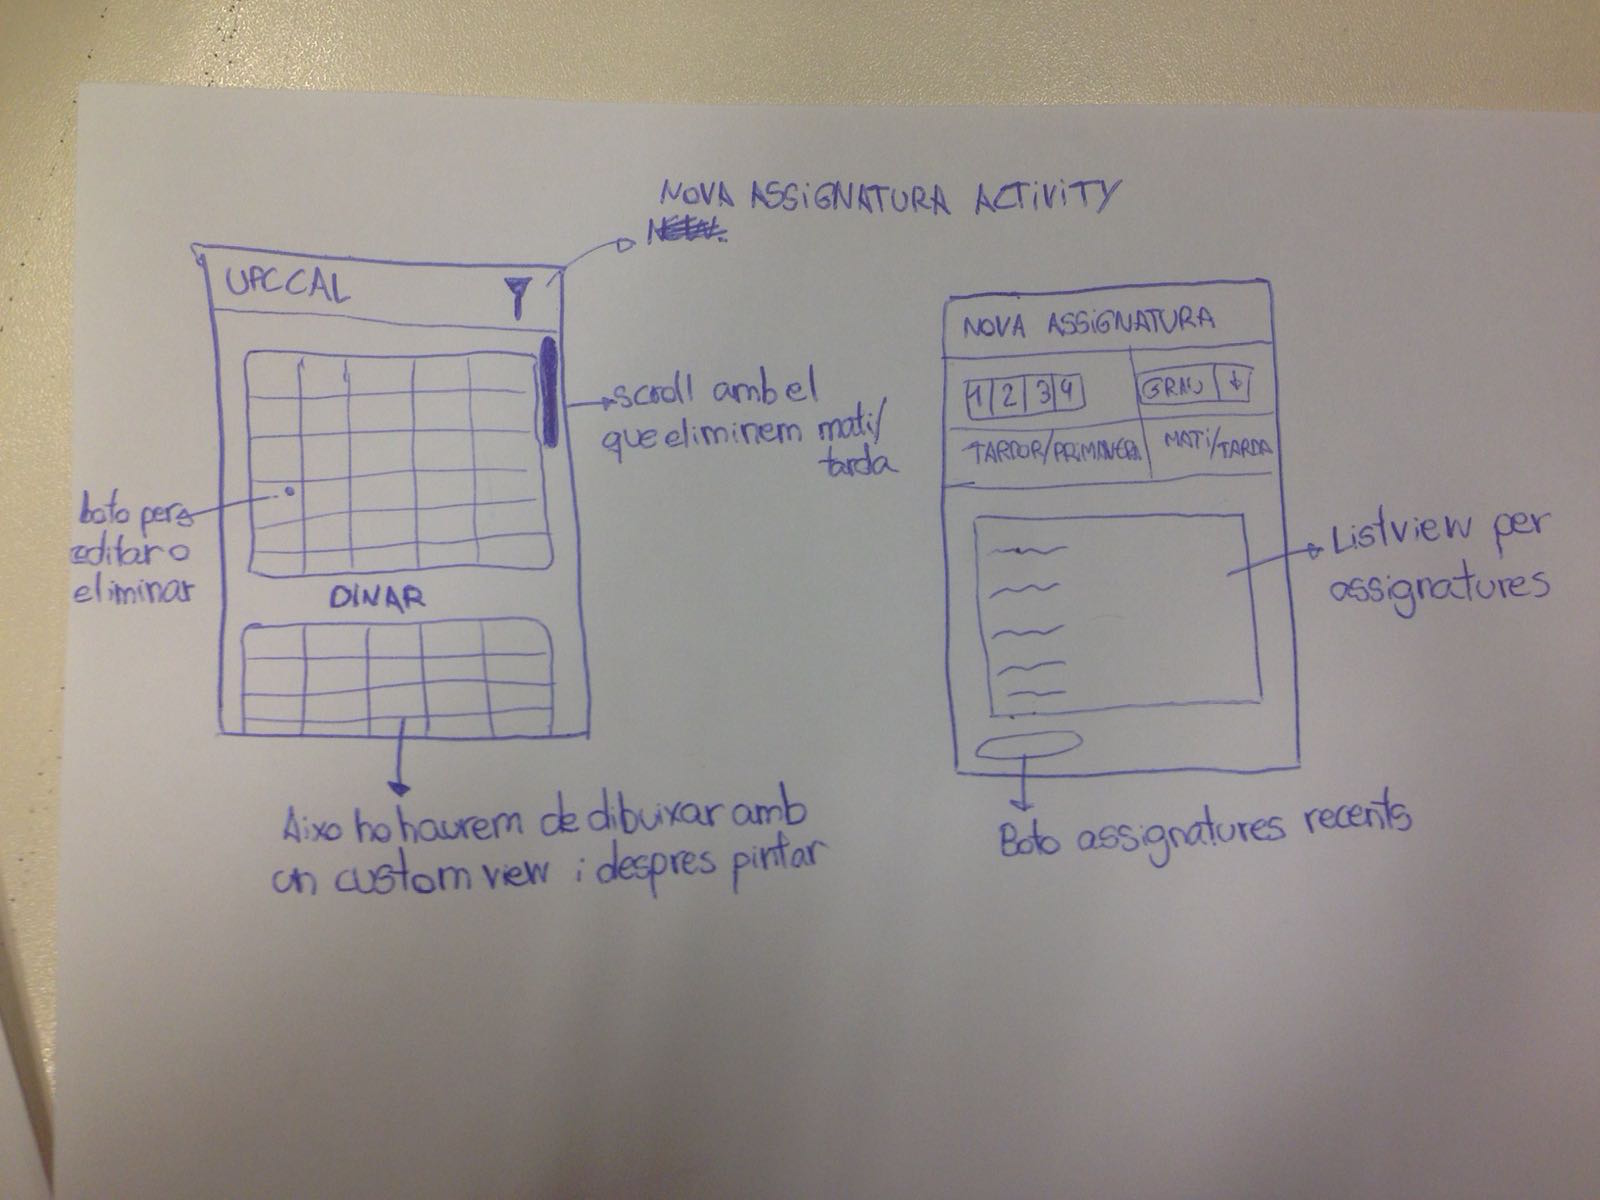 NOVA ASSIGNATURA ACTIVITY
UPCCAL
scroll amb el
que eliminem mati/
tarda
boto per
editar o
eliminar
DINAR
Aixo ho haurem de dibuixar amb
un custom view i despres pintar
NOVA ASSIGNATURA
1 2 3 4 GRAU
TARDOR/PRIMAVERA MATI/TARDA
Listview per
assignatures
Boto assignatures recents